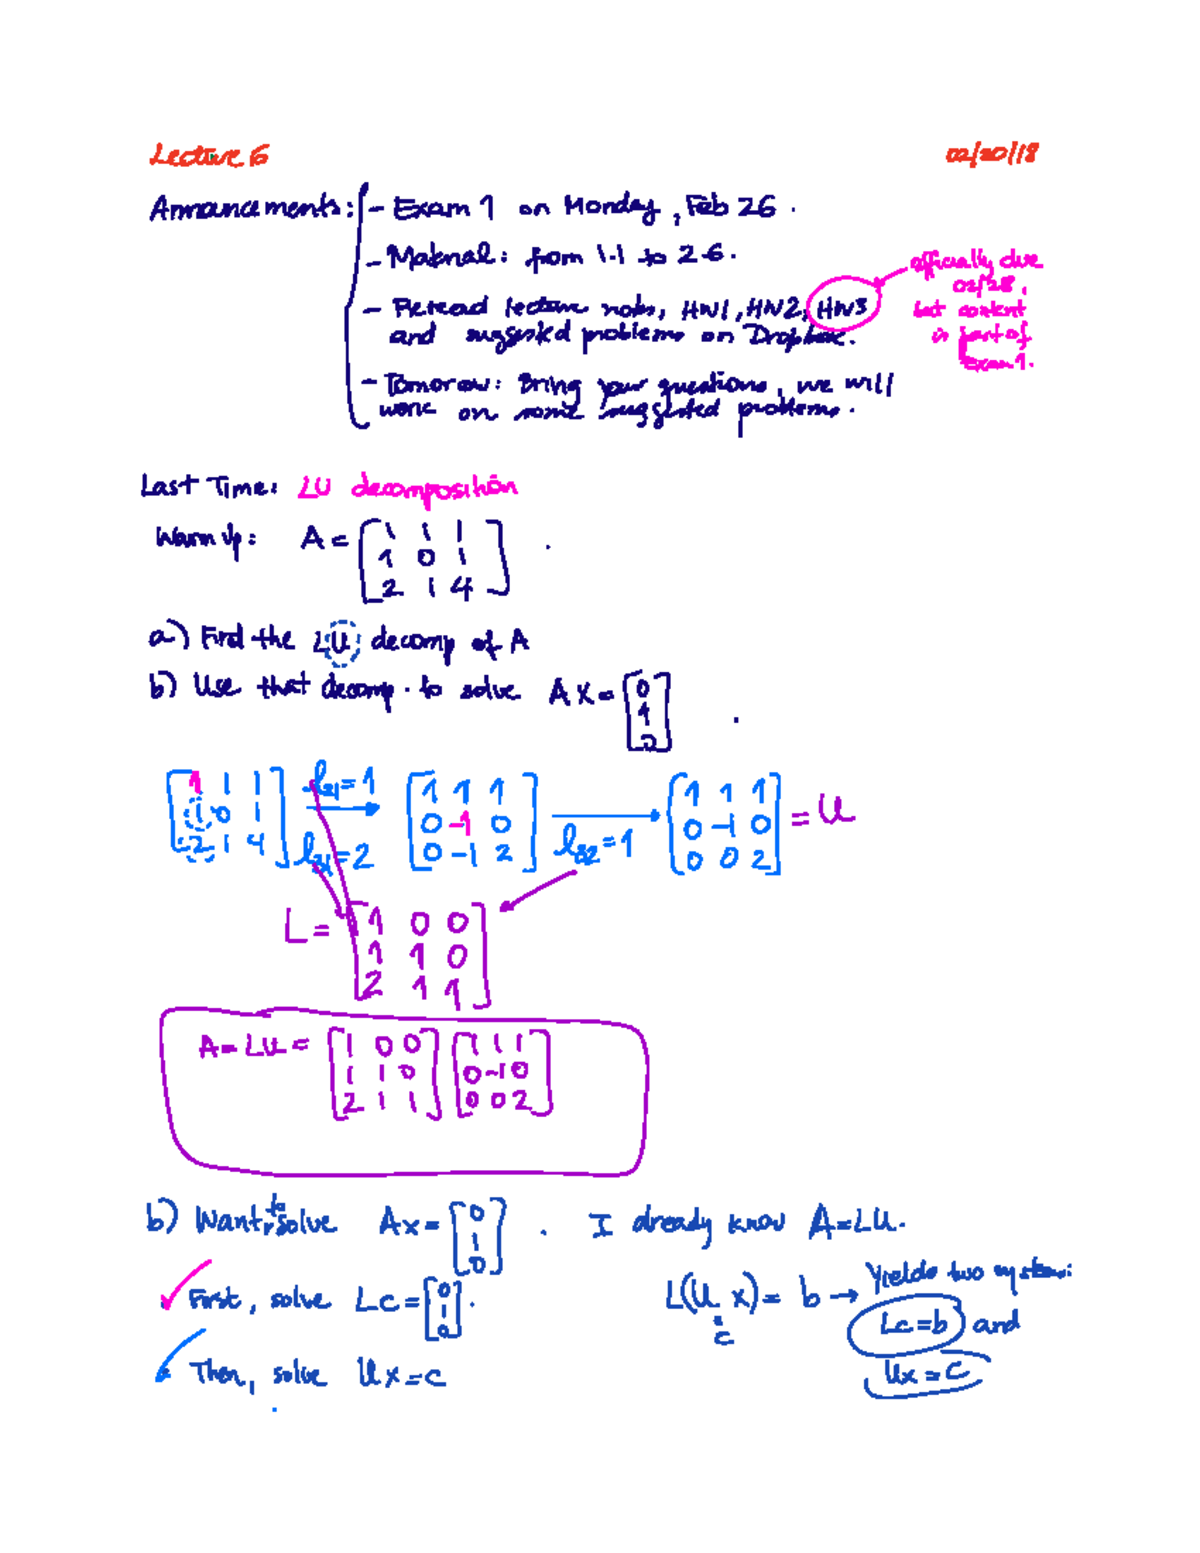 Lecture 6 02/20/18
Announcements: - Exam 1 on Monday, Feb 26.
- Material: from 1.1 to 2.6.
- Reread lecture notes, HW1, HW2, HW3
and suggested problems on Dropbox.
officially due
02/28,
but content
is part of
Exam 1.
- Tomorrow: Bring your questions, we will
work on some suggested problems.
Last Time: LU decomposition
Warm Up: A = [1 1 1
1 0 1
2 1 4]
a) Find the LU decomp of A
b) Use that decomp. to solve Ax = [0
1
0]
[1 1 1
1 0 1
2 1 4] l21 = 1 l31 = 2 → [1 1 1
0 -1 0
0 -1 2] l32 = 1 → [1 1 1
0 -1 0
0 0 2] = U
L = [1 0 0
1 1 0
2 1 1]
A = LU = [1 0 0
1 1 0
2 1 1] [1 1 1
0 -1 0
0 0 2]
b) Want to solve Ax = [0
1
0] . I already know A = LU.
First, solve Lc = [0
1
0].
Then, solve Ux = c
L(U x) = b → Yields two systems:
c
Lc = b and
Ux = c